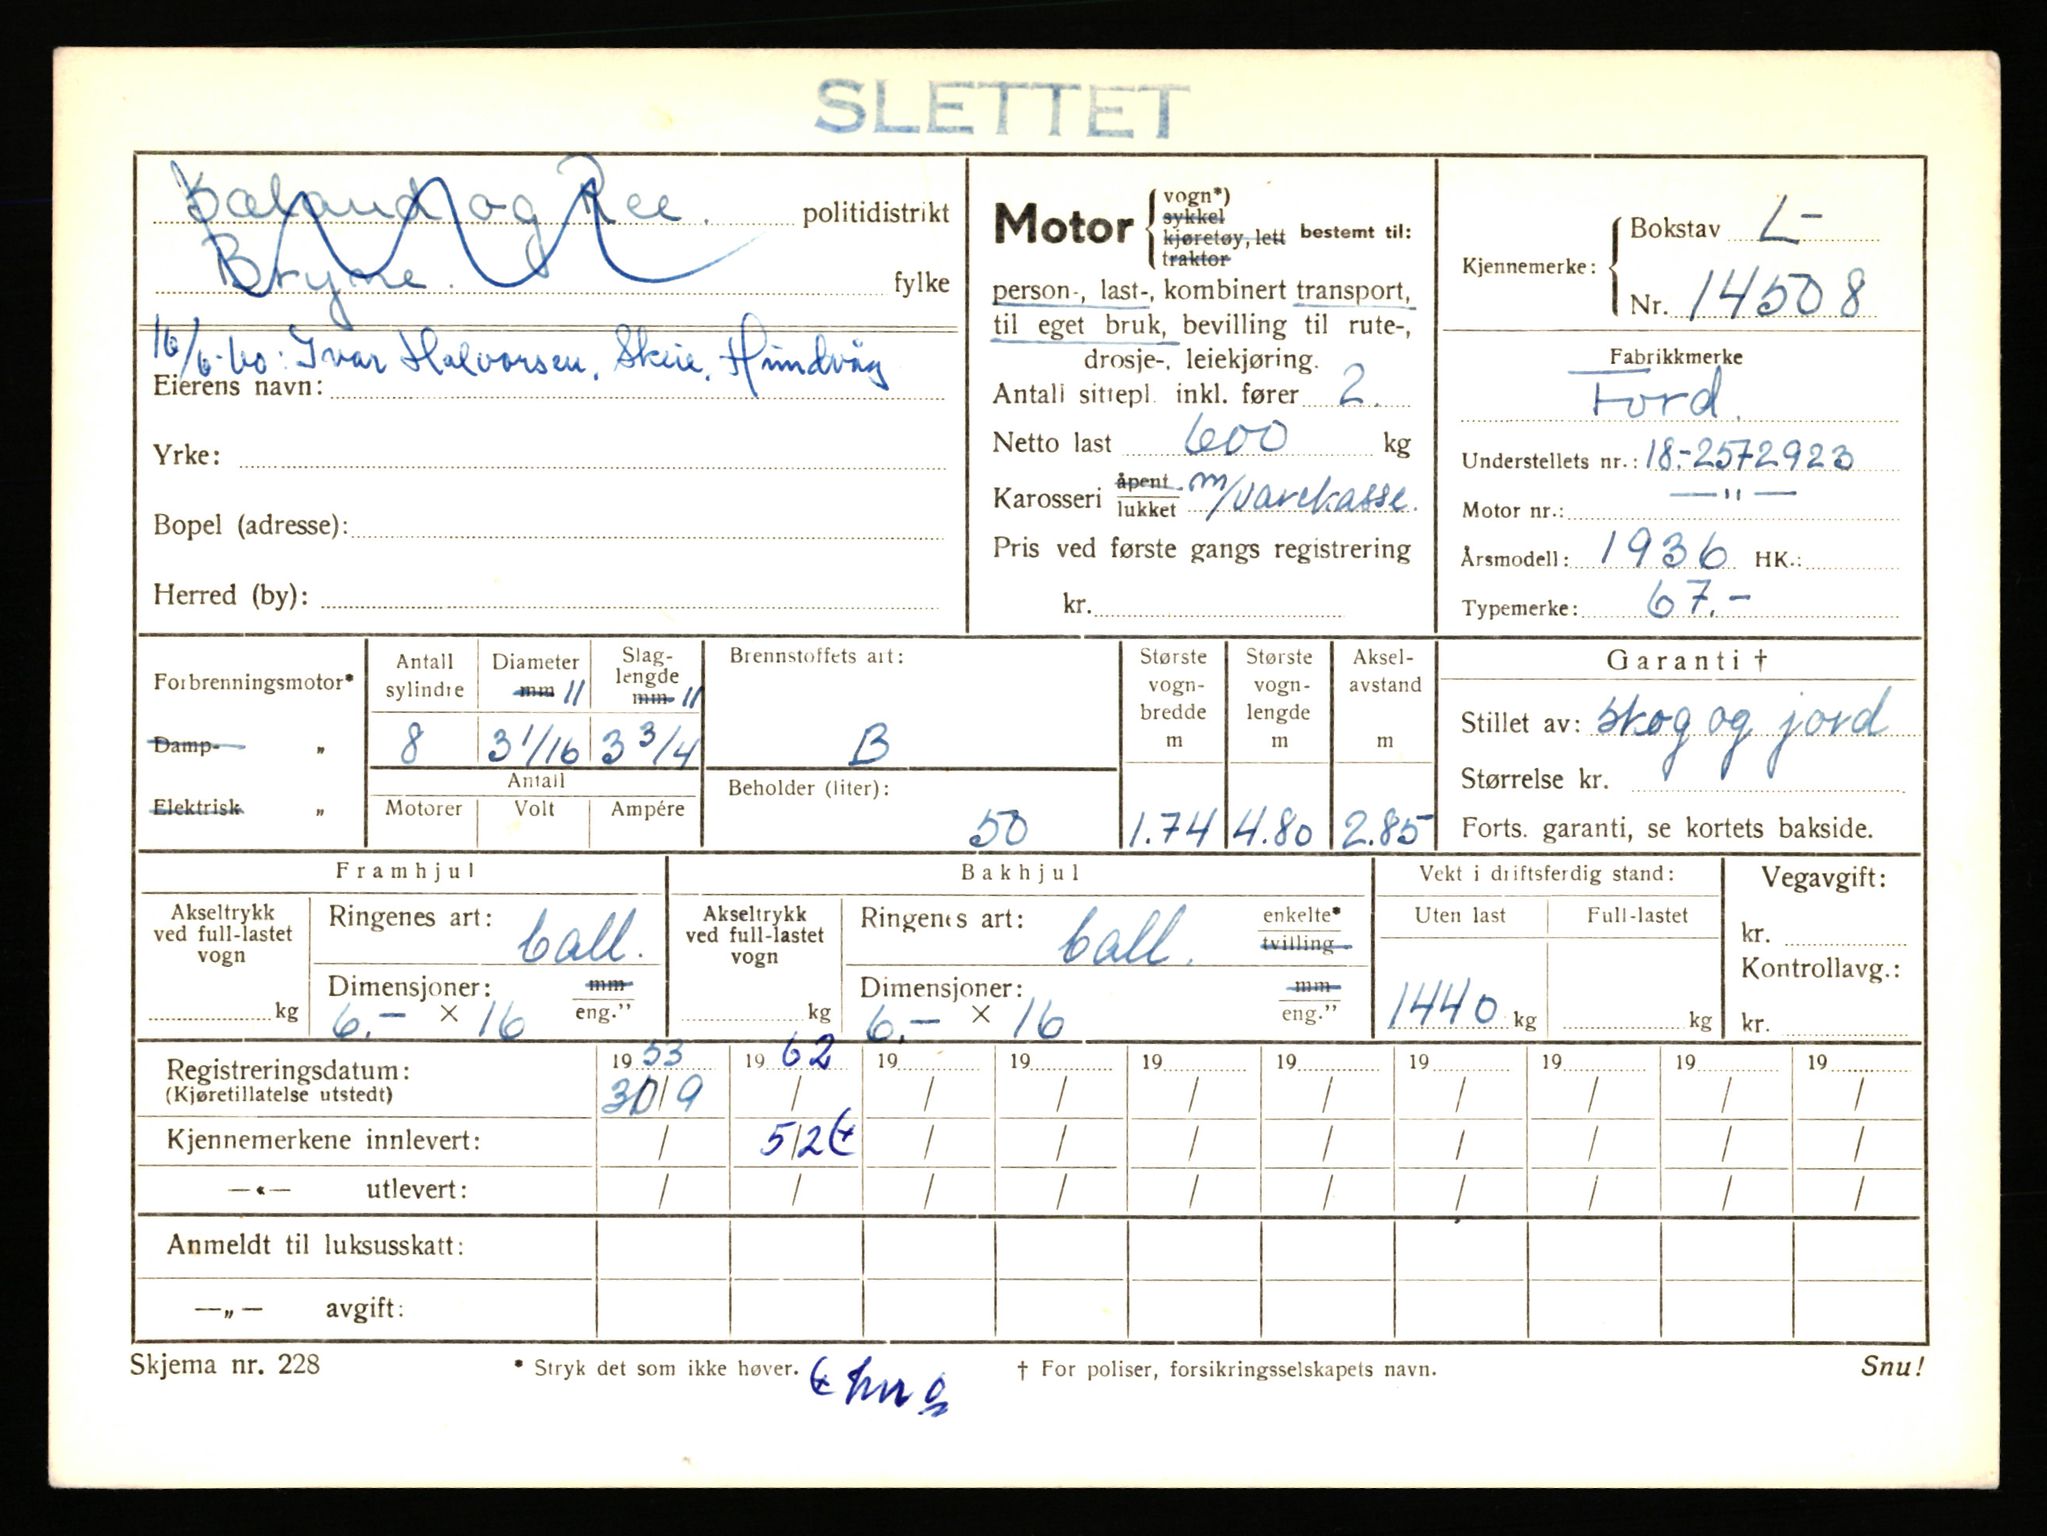 SLETTET
Kaland og Ree. politidistrikt
Bryne. fylke
16/6-60: Ivar Halvorsen, Skeie, Hundvåg
Eierens navn:
Yrke:
Bopel (adresse):
Herred (by):
Motor vogn*) sykkel kjøretøy, lett traktor bestemt til:
person-, last-, kombinert transport,
til eget bruk, bevilling til rute-,
drosje-, leiekjøring.
Antall sittepl. inkl. fører 2.
Netto last 600 kg
Karosseri åpent lukket m/varekasse.
Pris ved første gangs registrering
kr.
Kjennemerke: Bokstav L-
Nr. 14508
Fabrikkmerke
Ford.
Understellets nr.: 18-2572923
Motor nr.: — " —
Årsmodell: 1936 HK.:
Typemerke: 67.-
Forbrenningsmotor*
Damp- „
Elektrisk „
Antall sylindre 8
Diameter mm " 3 1/16
Slaglengde mm " 3 3/4
Antall
Motorer Volt Ampére
Brennstoffets art:
B
Beholder (liter):
50
Største vogn-bredde m 1.74
Største vogn-lengde m 4.80
Aksel-avstand m 2.85
Garanti †
Stillet av: Skog og jord
Størrelse kr.
Forts. garanti, se kortets bakside.
Framhjul
Akseltrykk ved full-lastet vogn kg
Ringenes art: ball.
Dimensjoner: mm eng."
6.- × 16
Bakhjul
Akseltrykk ved full-lastet vogn kg
Ringenes art: ball. enkelte* tvilling
Dimensjoner: mm eng."
6.- × 16
Vekt i driftsferdig stand:
Uten last Full-lastet
1440 kg kg
Vegavgift:
kr.
Kontrollavg.:
kr.
Registreringsdatum: 19 53 19 62 19 19 19 19 19 19 19 19
(Kjøretillatelse utstedt) 30/9 / / / / / / / / /
Kjennemerkene innlevert: / 5/2 / / / / / / / /
—«— utlevert: / / / / / / / / / /
Anmeldt til luksusskatt:
—„— avgift:
Skjema nr. 228 * Stryk det som ikke høver. † For poliser, forsikringsselskapets navn. Snu!